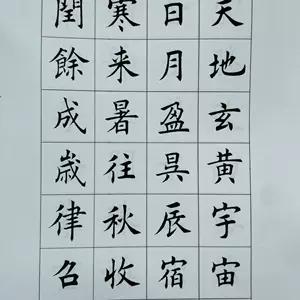 天地玄黃宇宙
日月盈昃辰宿
寒来暑往秋收
閏餘成嵗律召